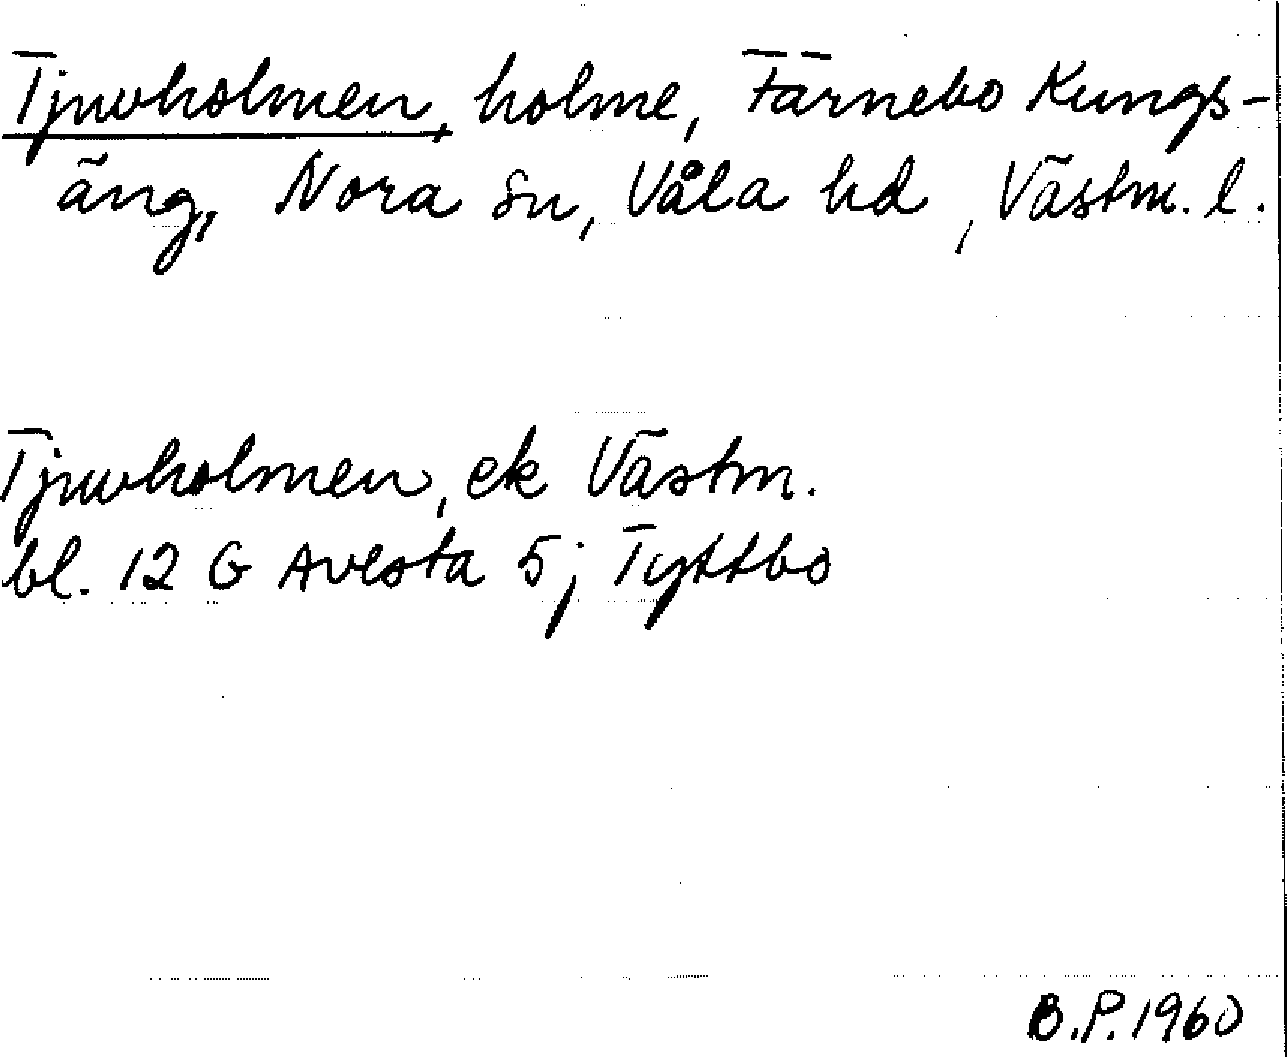 Tjuvholmen, holme, Färnebo Kungs-
äng, Nora sn, Våla hd, Västm. l.
Tjuvholmen, ek Västm.
bl. 12 G Avesta 5j Tyttbo
B.P. 1960